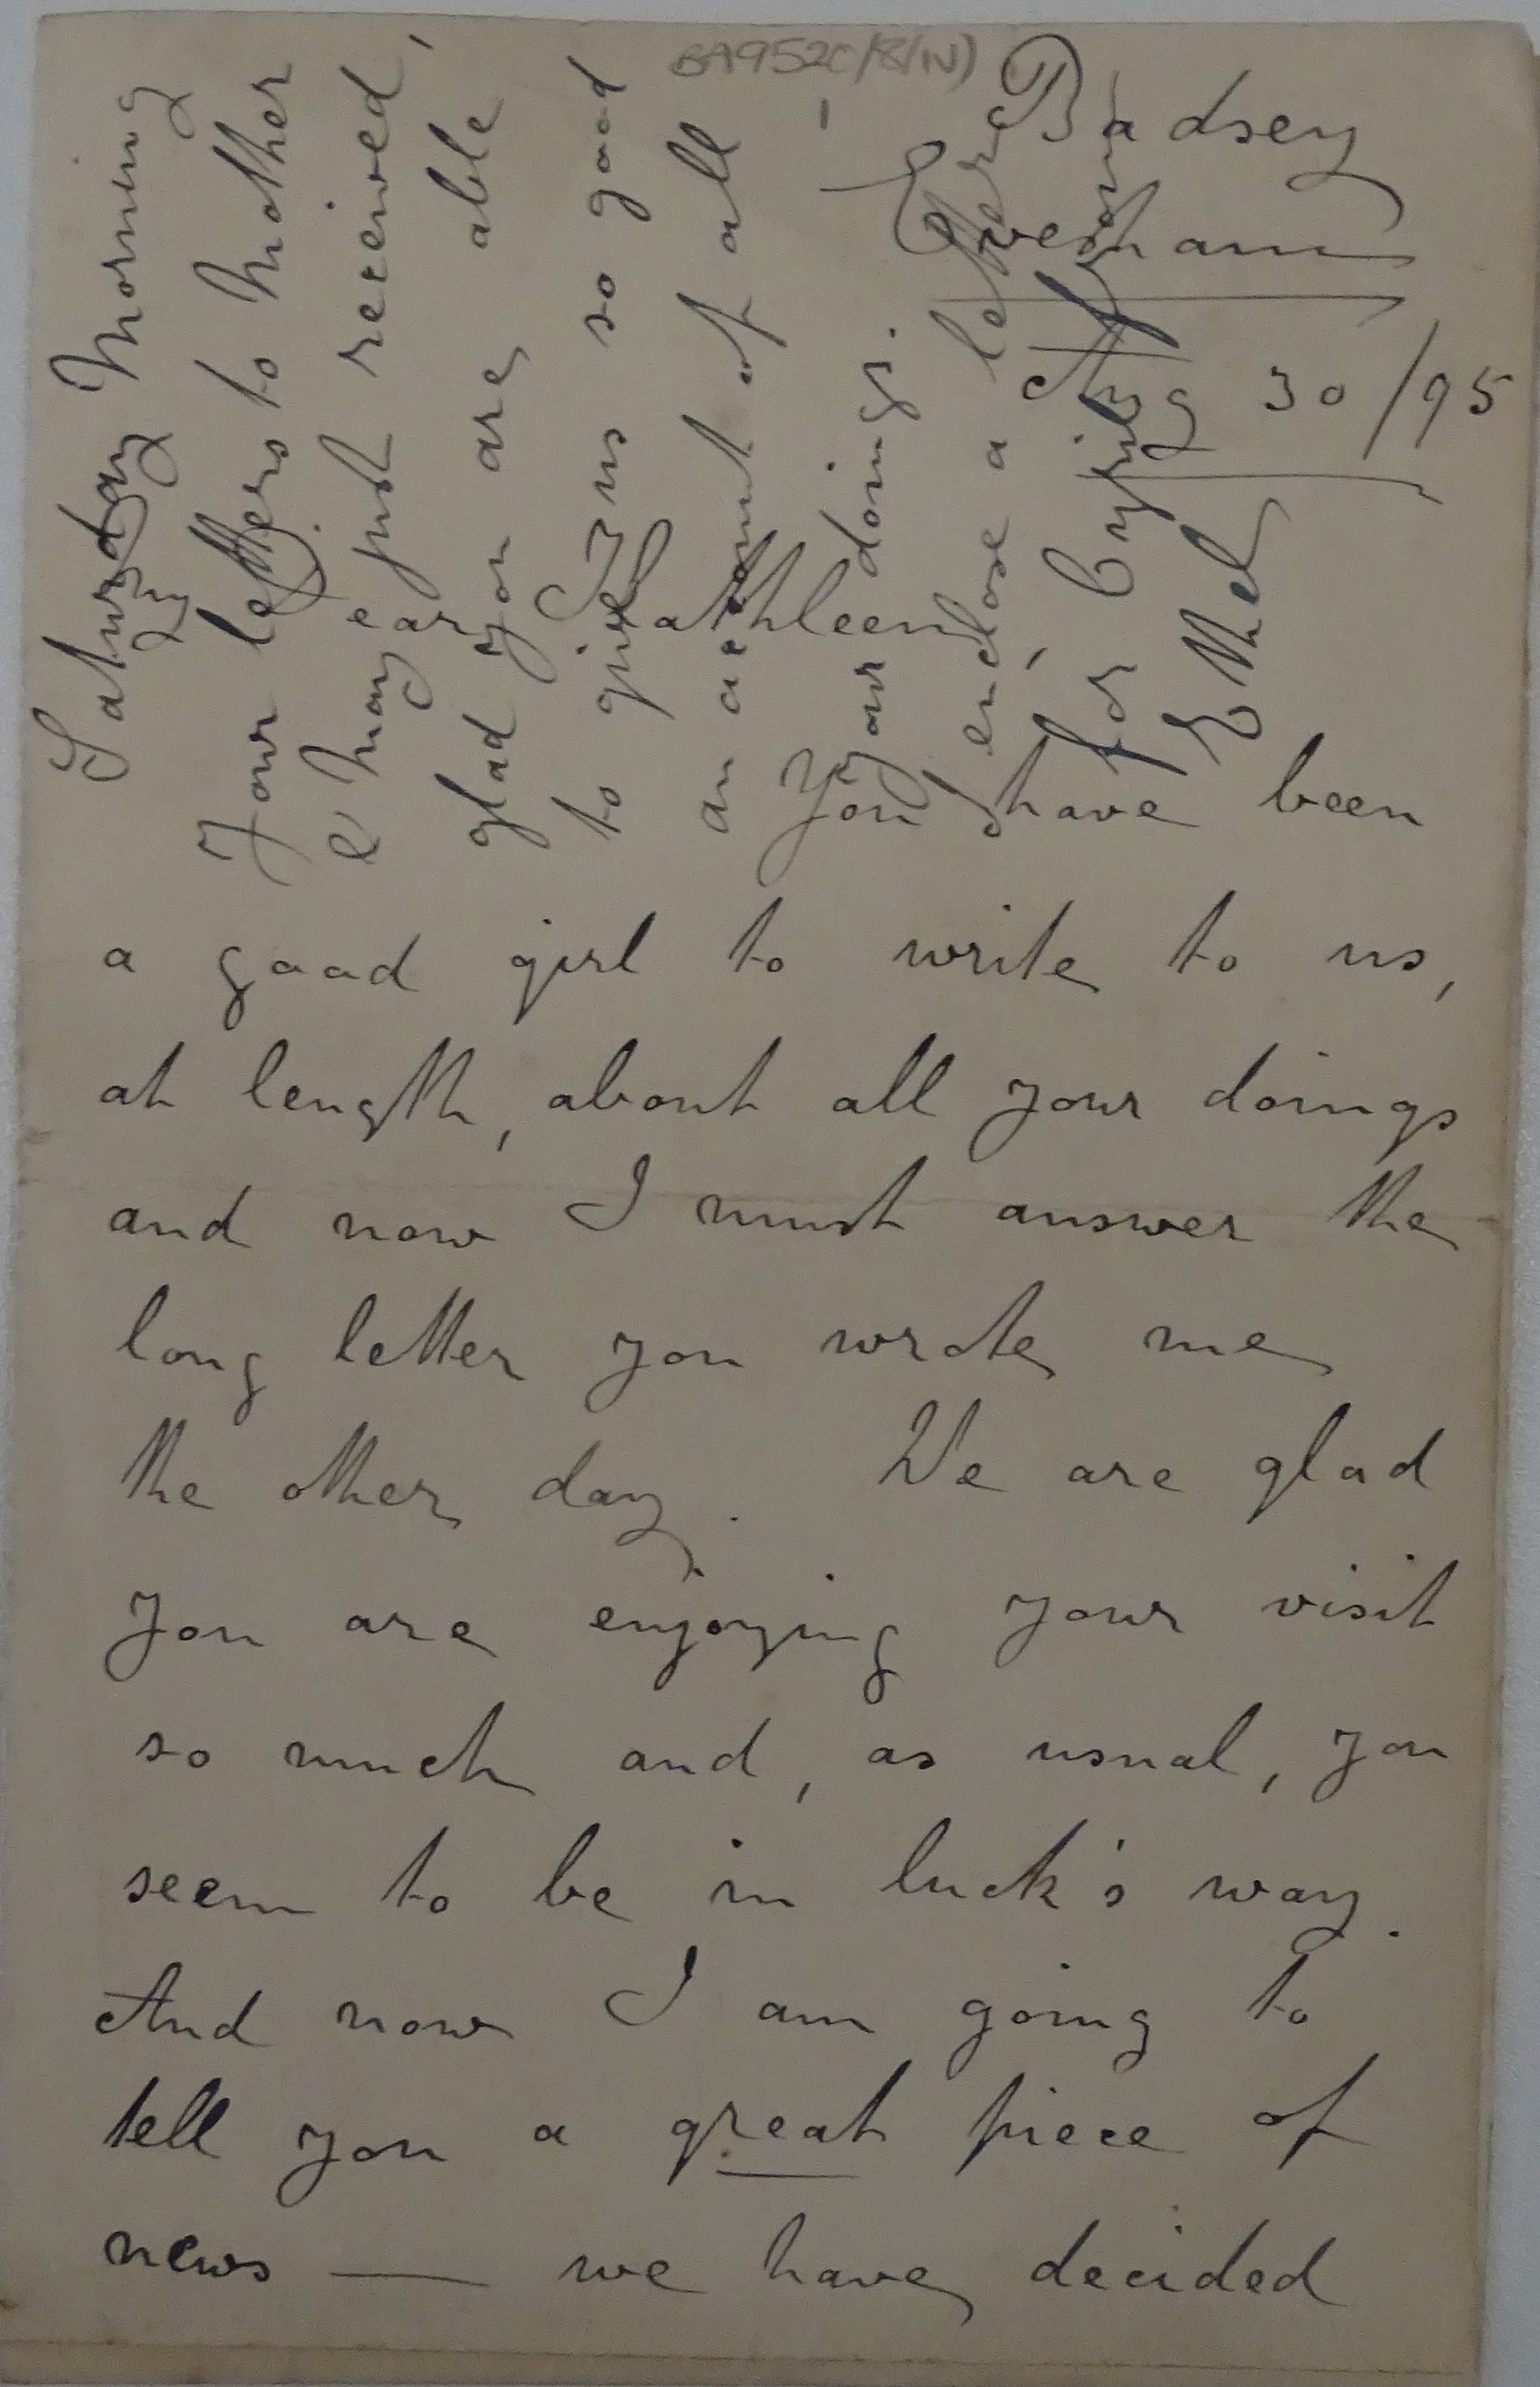 BA9520/8/(N)
Badsey
Evesham
Aug 30/95
My dear Kathleen
You have been
a good girl to write to us,
at length, about all your doings
and now I must answer the
long letter you wrote me
the other day. We are glad
you are enjoying your visit
so much and, as usual, you
seem to be in luck's way.
And now I am going to
tell you a great piece of
news — we have decided
Saturday Morning
Your letters to Mother
& May just received,
glad you are able
to give us so good
an account of all
your doings. I
enclose a letter
for Cyril from
Ethel